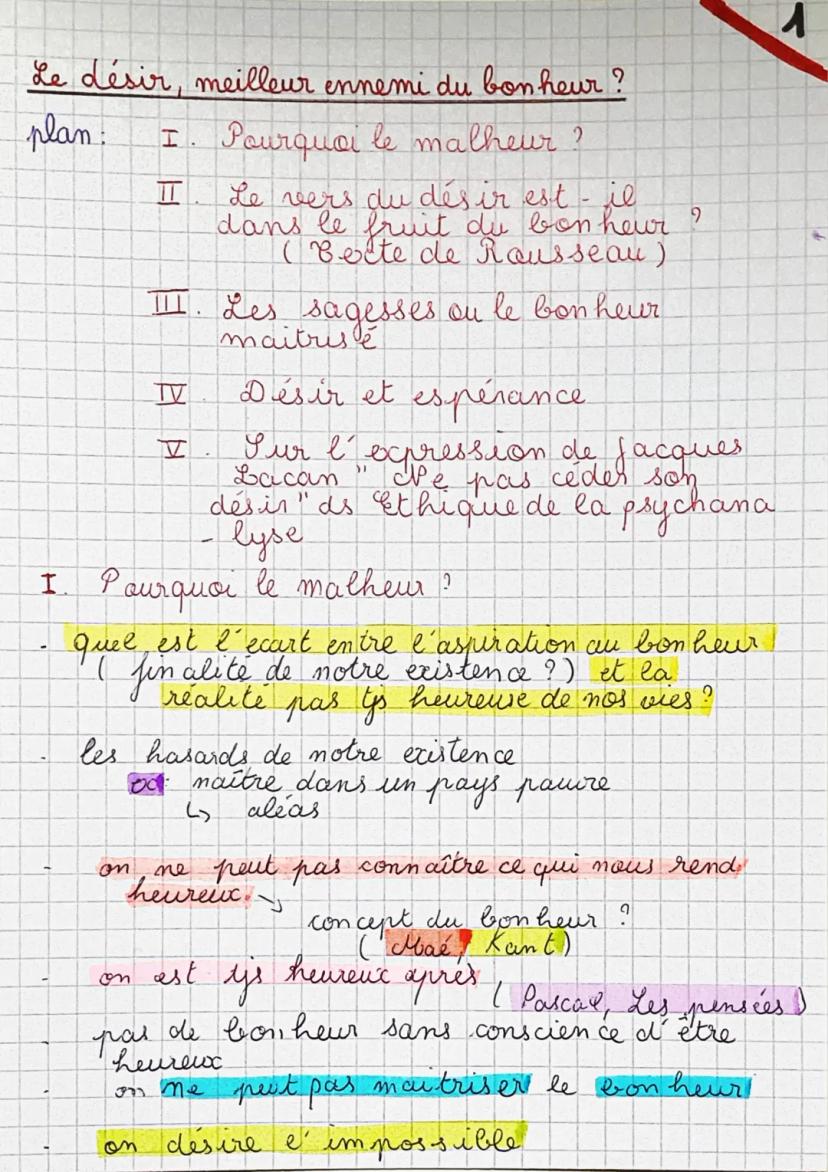 1
Le désir, meilleur ennemi du bonheur ?
plan : I. Pourquoi le malheur ?
II. Le vers du désir est-il
dans le fruit du bonheur ?
( Texte de Rousseau )
III. Les sagesses ou le bonheur
maitrisé
IV. Désir et espérance
V. Sur l'expression de Jacques
Lacan " Ne pas céder son
désir " ds Ethique de la psychana
- lyse
I. Pourquoi le malheur ?
- quel est l'ecart entre l'aspiration au bonheur
( finalité de notre existence ?) et la
réalité pas tjs heureuse de nos vies ?
- les hasards de notre existence
ex : naître dans un pays pauvre
↳ aléas
- on ne peut pas connaître ce qui nous rend
heureux. ↘
concept du bonheur ?
( Maé, Kant )
- on est tjs heureux après
( Pascal, Les pensées )
- pas de bonheur sans conscience d'être
heureux
- on ne peut pas maitriser le bonheur
- on désire l'impossible